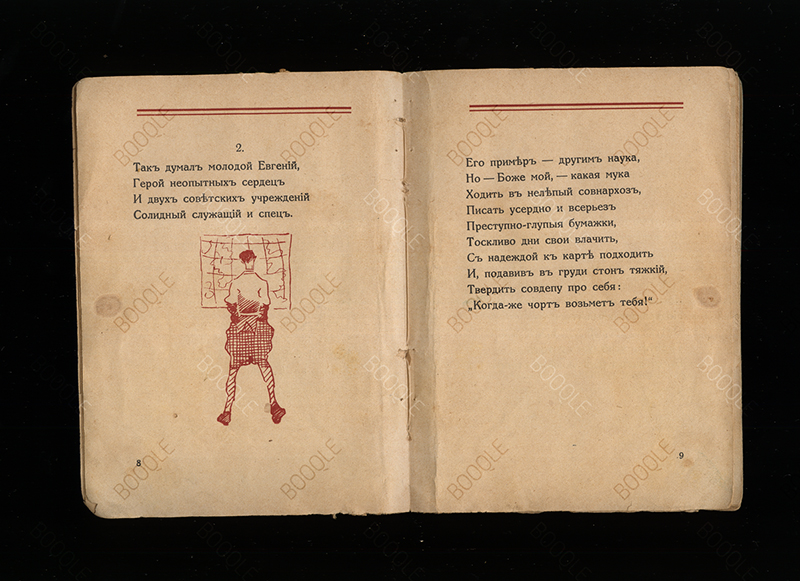 2.
Такъ думалъ молодой Евгеній,
Герой неопытныхъ сердецъ
И двухъ совѣтскихъ учрежденій
Солидный служащій и спецъ.
8
Его примѣръ — другимъ наука,
Но — Боже мой, — какая мука
Ходить въ нелѣпый совнархозъ,
Писать усердно и всерьезъ
Преступно-глупыя бумажки,
Тоскливо дни свои влачить,
Съ надеждой къ картѣ подходить
И, подавивъ въ груди стонъ тяжкій,
Твердить совдепу про себя:
„Когда-же чортъ возьметъ тебя!“
9
BOOQLE
BOOQLE
BOOQLE
BOOQLE
BOOQLE
BOOQLE
BOOQLE
BOOQLE
BOOQLE
BOOQLE
BOOQLE
BOOQLE